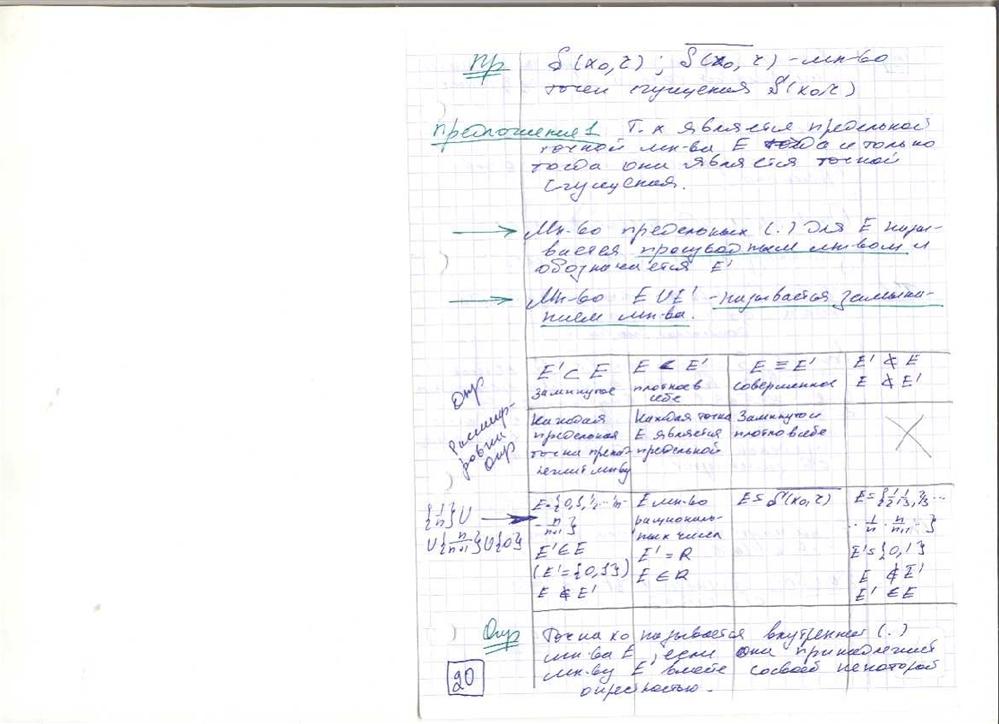 Пр S(x₀, r) ; S̅(x₀, r) - мн-во
точек сгущения S(x₀, r)
Предложение 1. Т. x является предельной
точкой мн-ва E тогда и только
тогда она является точкой
сгущения.
Мн-во предельных (.) для E назы-
вается производным мн-вом и
обозначается E'
Мн-во E ∪ E' - называется замыка-
нием мн-ва.
Опр
E' ⊂ E
замкнутое
E ⊂ E'
плотное в
себе
E ≡ E'
совершенное
E' ⊄ E
E ⊄ E'
Расшиф-
ровка
Опр
Каждая
предельная
точка прина-
лежит мн-ву
Каждая точка
E является
предельной
Замкнуто и
плотно в себе
{1/n} ∪
∪ {n/(n+1)} ∪ {0}
E = {0, 1,
n/(n+1)}
E' ∈ E
(E' = {0, 1})
E ∉ E'
E мн-во
рациональ-
ных чисел
E' = R
E ∈ R
E = S̅(x₀, r)
E = {1/2
... 1/n · n/(n+1) ...}
E' = {0, 1}
E ∉ E'
E' ∈ E
Опр Точка x₀ называется внутренней (.)
мн-ва E, если она принадлежит
мн-ву E вместе со своей некоторой
окрестностью.
20